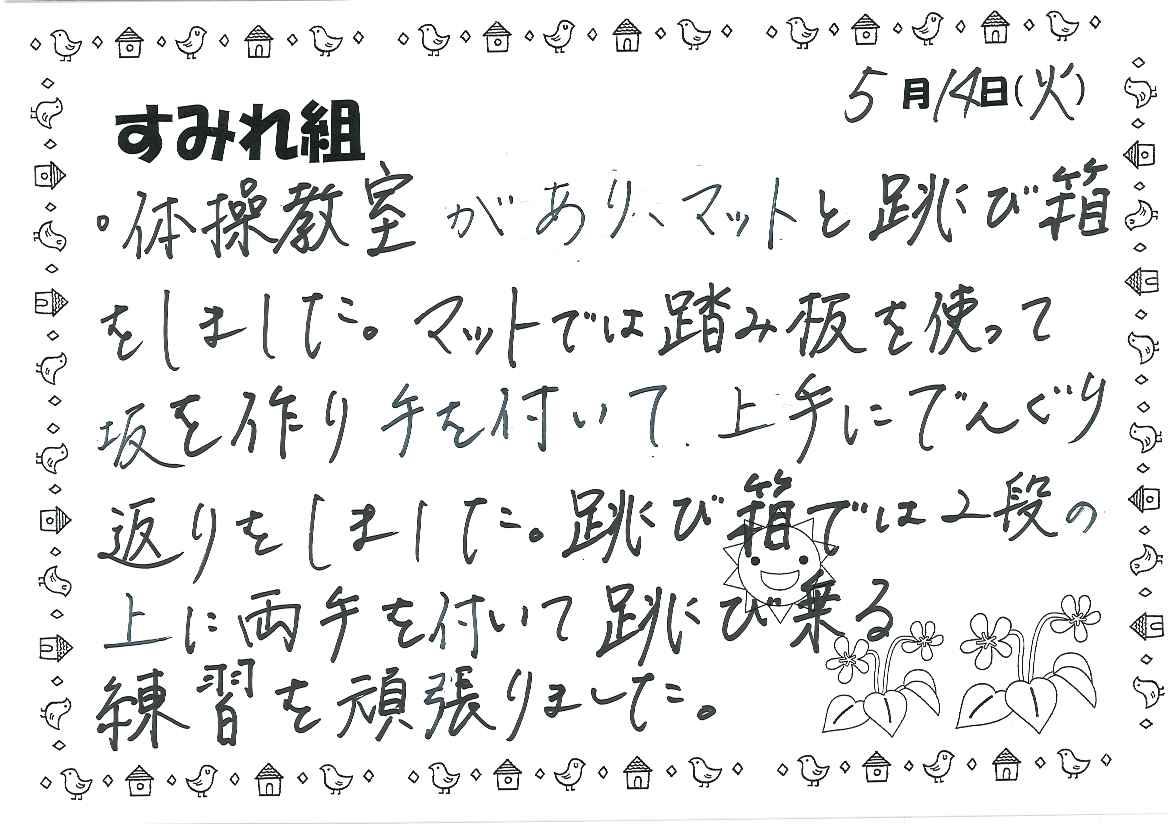 5月14日(火)
すみれ組
。体操教室があり、マットと跳び箱
をしました。マットでは踏み板を使って
坂を作り手を付いて、上手にでんぐり
返りをしました。跳び箱では2段の
上に両手を付いて跳び乗る
練習を頑張りました。